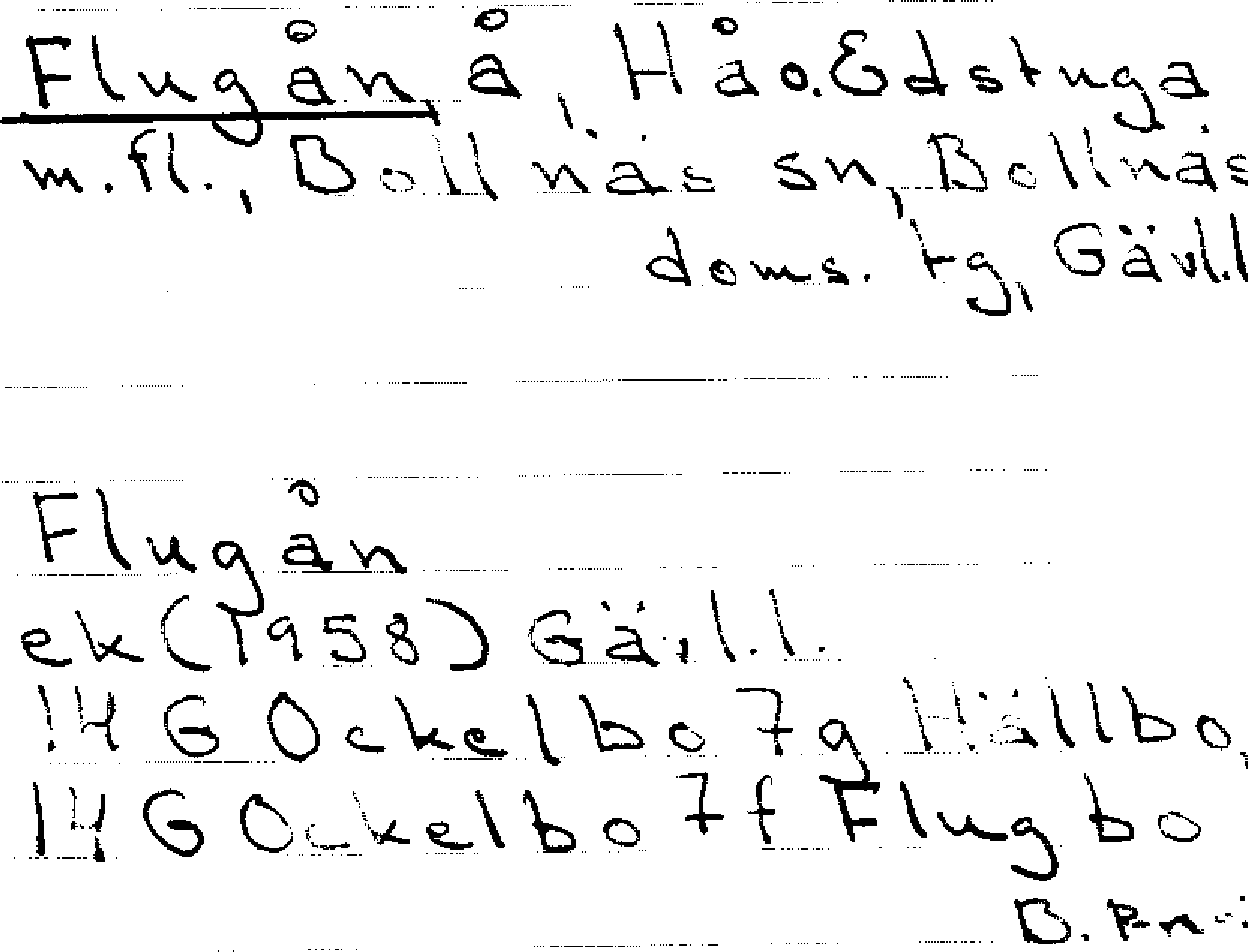 Flugån, å, Hå o. Edstuga
m.fl., Bollnäs sn, Bollnäs
doms. tg, Gävl.l
Flugån
ek (1958) Gävl.l.
14 G Ockelbo 7g Hällbo,
14 G Ockelbo 7f Flugbo
B.